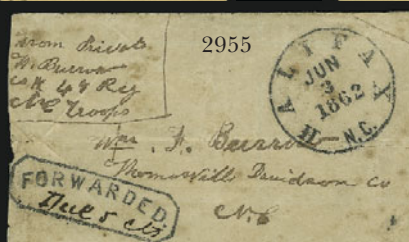 2955
from Private
W Burrow
Co H 48 Reg
NC Troops
HALIFAX
JUN
3
1862
N.C.
Wm. F. Burrow
Thomasville Davidson Co
N.C
FORWARDED
Due 5 cts